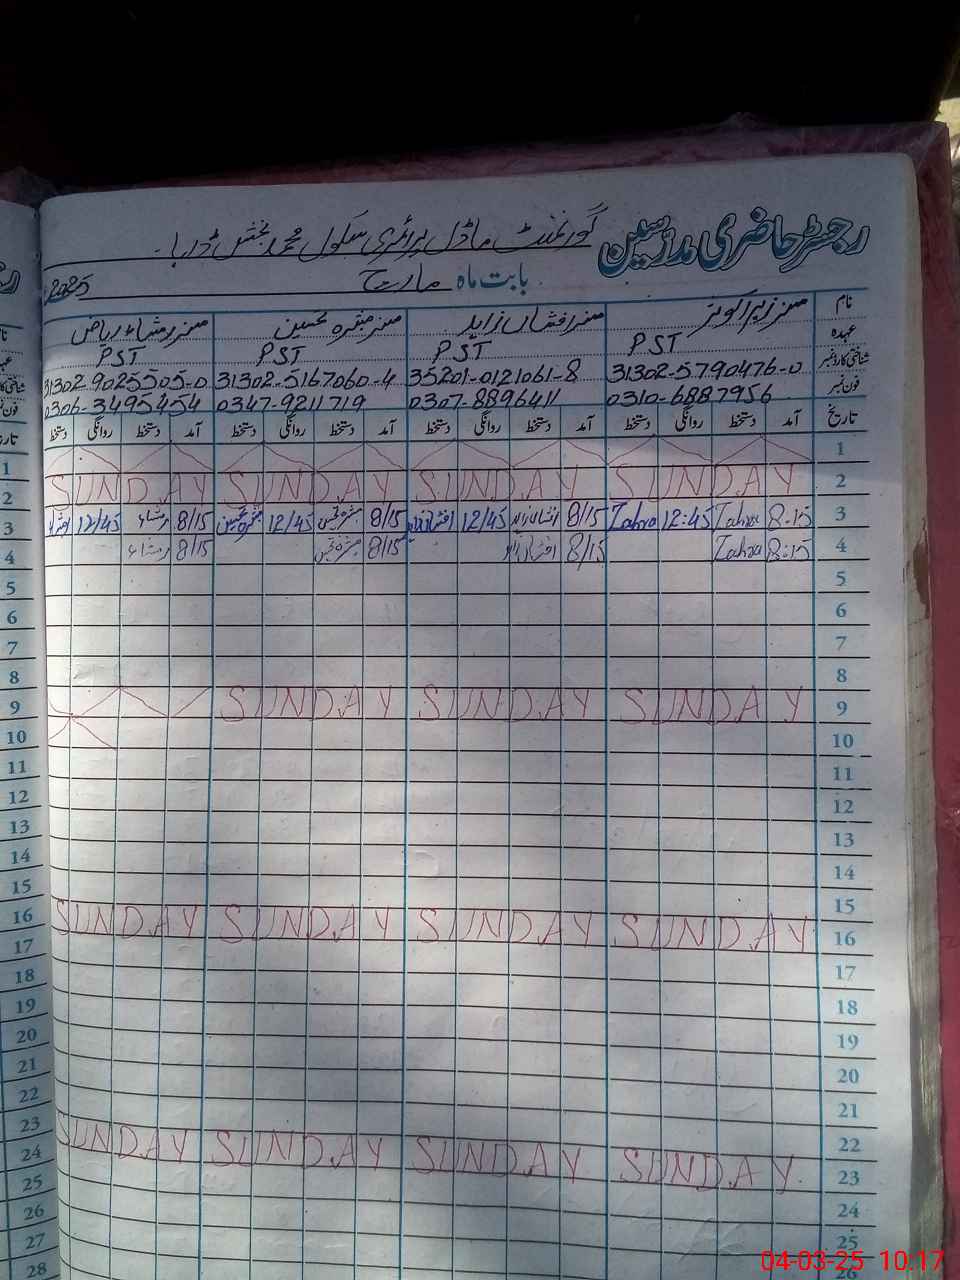 رجسٹر حاضری مدرسین گورنمنٹ ماڈل پرائمری سکول محمد بخش
بابت ماہ مارچ 2025
نام مسز افشاں زاہد مسز تحسین مسز رمشاء ریاض
عہدہ PST PST PST PST
شناختی کارڈ نمبر 31302-5790476-0 35201-0121061-8 31302-5167060-4 31302-9025505-0
فون نمبر 0310-6887956 0307-8896411 0347-9211719 0306-3495454
تاریخ آمد دستخط روانگی دستخط آمد دستخط روانگی دستخط آمد دستخط روانگی دستخط آمد دستخط روانگی دستخط
1
2 SUNDAY SUNDAY SUNDAY SUNDAY
3 8:15 Zahra 12:45 Zahra 8/15 افشاں زاہد 12/45 افشاں زاہد 8/15 12/45 8/15 رمشاء 12/45
4 8:15 Zahra 8/15 افشاں زاہد 8/15 8/15 رمشاء
5
6
7
8
9 SUNDAY SUNDAY SUNDAY
10
11
12
13
14
15
16 SUNDAY SUNDAY SUNDAY SUNDAY
17
18
19
20
21
22
23 SUNDAY SUNDAY SUNDAY SUNDAY
24
25
26
1
2
3
4
5
6
7
8
9
10
11
12
13
14
15
16
17
18
19
20
21
22
23
24
25
26
27
28
04-03-25 10:17